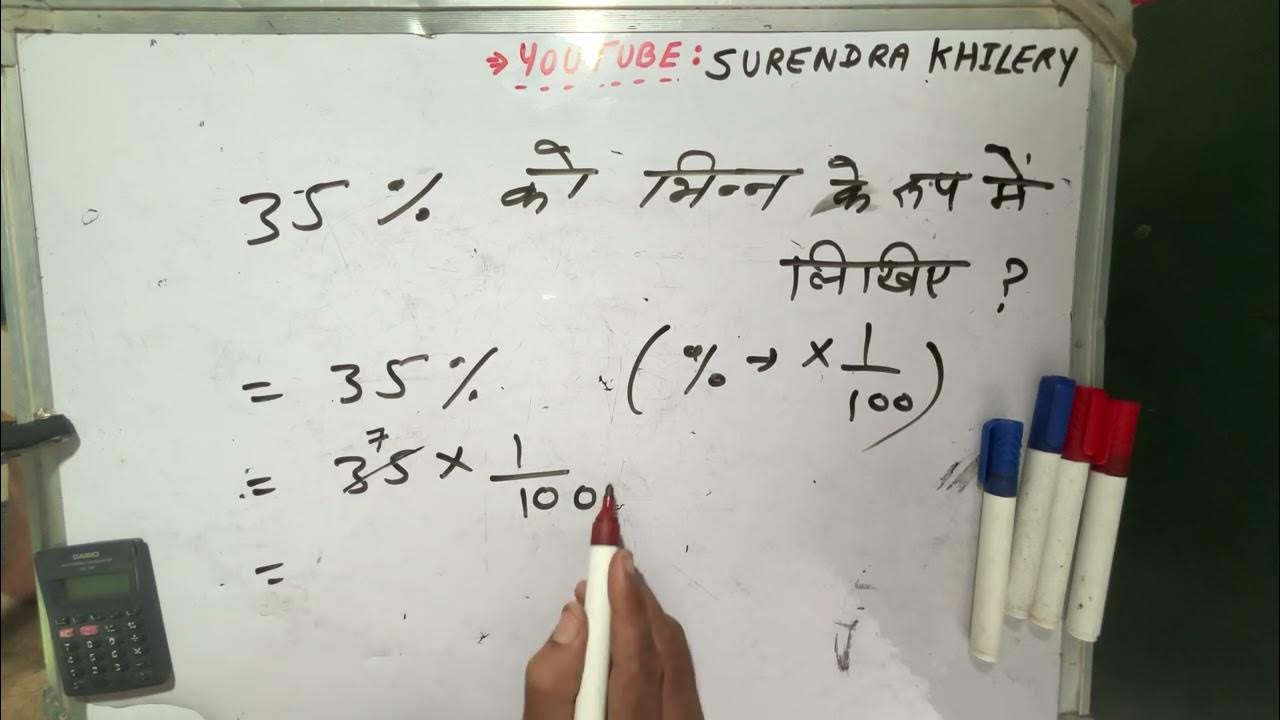 → YOUTUBE: SURENDRA KHILERY
35 % को भिन्न के रूप में
लिखिए ?
= 35 % (% → × 1/100)
= 35 7 × 1/100
=
CASIO